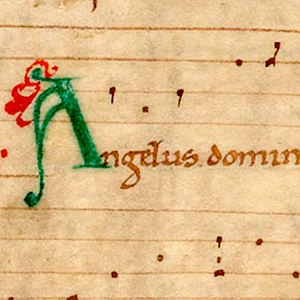 Angelus domin